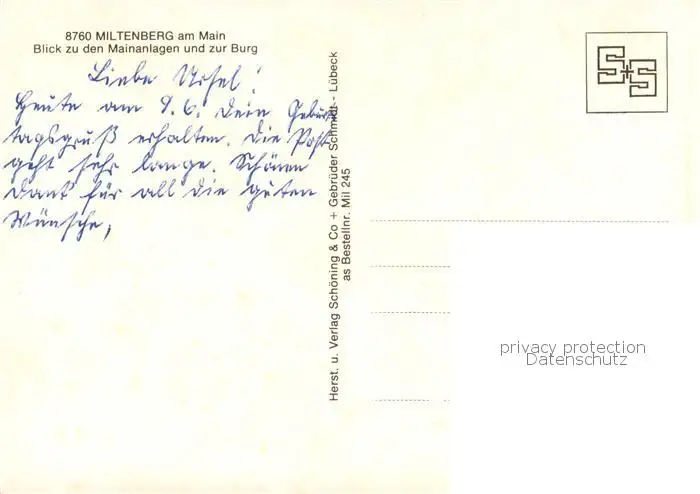 8760 MILTENBERG am Main
Blick zu den Mainanlagen und zur Burg
Liebe Ursel!
Heute am 9.6. Dein Geburts
tagsgruß erhalten. Die Post
geht sehr lange. Schönen
Dank für all die guten
Wünsche,
Herst. u. Verlag Schöning & Co + Gebrüder Schmidt - Lübeck
as Bestellnr. Mil 245
S+S
privacy protection
Datenschutz